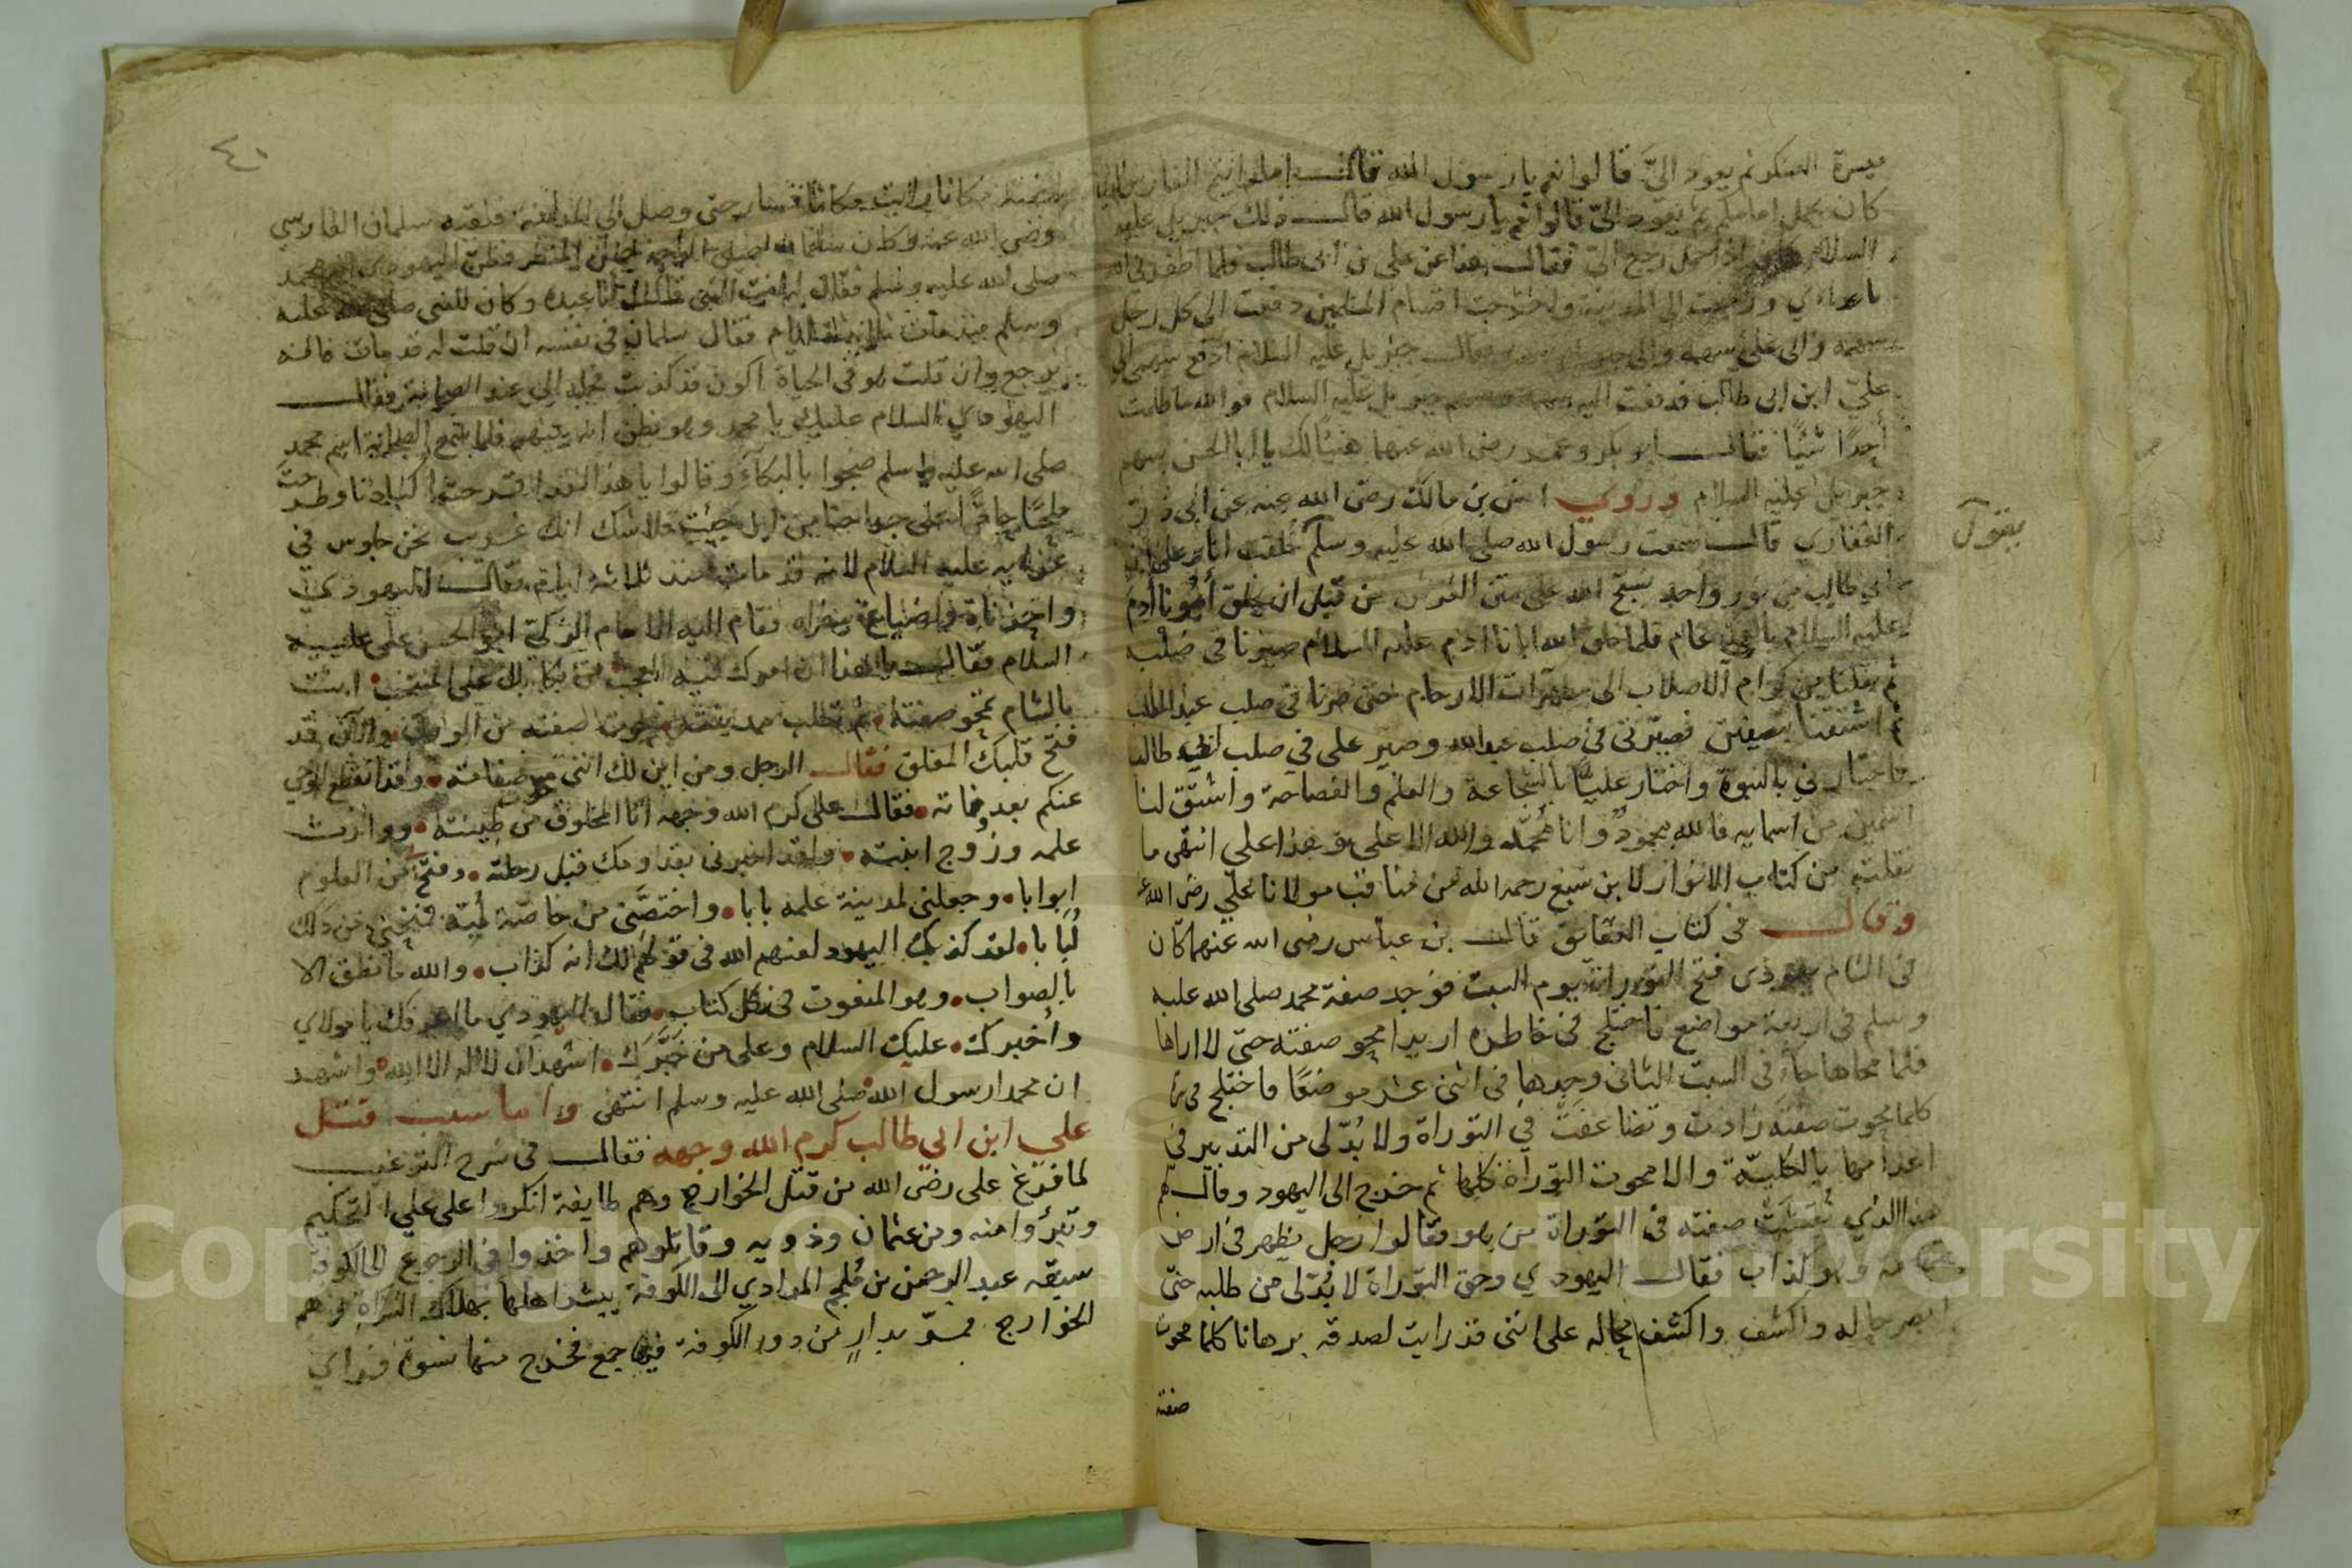 ميسرة العسكر ثم يعود الىَّ قالوا نعم يا رسول الله قال اما رايتم الفارس الذي
كان يحمل امامكم ثم يعود الىّ قالوا نعم يا رسول الله قال ذلك جبريل عليه
السلام اذا حمل رجع الىّ فقال هذا عن علي بن ابى طالب فلما اظفرني الله
باعدائي ورجعت الى المدينة واخرجت اقسام المسلمين دفعت الى كل رجل
سهمه والى علي سهمه فقال جبريل عليه السلام ادفع سهمي الى
عليّ ابن ابى طالب فدفعت اليه جبريل عليه السلام فوالله ما ظلمت
أحدًا شيًا فقال ابو بكر وعمر رضى الله عنهما هنيًا لك يا ابا الحسن بسهم
جبرايل عليه السلام وروي انس بن مالك رضى الله عنه عن ابى ذر
الغفاري قال سمعت رسول الله صلى الله عليه وسلم خلقت انا وعلي بن
يقول
ابي طالب من نور واحد نسبح الله على متن العرش من قبل ان يخلق أبونا آدم
عليه السلام بالفي عام فلما خلق الله ابانا ادم عليه السلام صيرنا في صلبه
ثم نقلنا من كرام الاصلاب الى مطهرات الارحام حتى صرنا في صلب عبد المطلب
ثم اشتقنا نصفين فصيّرني في صلب عبد الله وصير علي في صلب ابى طالب
فاختارني بالنبوة واختار عليًا بالشجاعة والعلم والفصاحة واشتق لنا
اسمين من اسمايه فالله محمودٌ وانا مُحمّد والله الاعلى وهذا علي انتهى ما
نقلته من كتاب الانوار لابن سبع رحمه الله من مناقب مولانا علي رضى الله عنه
وقال في كتاب الحقايق قال بن عباس رضى الله عنهما كان
في الشام يهودى فتح التوراة يوم السبت فوجد صفة محمد صلى الله عليه
وسلم في اربعة مواضع فاختلج في خاطره اريد امحو صفته حتى لا اراها
فلما محاها جاء في السبت الثانى وجدها في اثنى عشر موضعًا فاختلج في
كلما محوت صفته زادت وتضاعفت في التوراة ولا بُدّ لى من التدبير في
اعدامها بالكلية والا محوت التوراة كلها ثم خرج الى اليهود وقال لهم
هذا الذي نقشت صفته في التوراة من هو فقالوا رجل يظهر في ارض
تهامة وهو كذاب فقال اليهودي وحق التوراة لا بُدّ لى من طلبه حتى
ابصر حاله واكشف واكشف محاله على انني قد رايت لصدقه برهانا كلما محوت
صفته
٤٠
صفته مكانا رايت مكانا فسار حتى وصل الى المدينة فلقيه سلمان الفارسي
رضى الله عنه وكان سلمان المنظر فظن اليهودى انه محمد
صلى الله عليه وسلم فقال له انت النبى فقال انا عبده وكان للنبى صلى الله عليه
وسلم منذ مات ثلاثة ايام فقال سلمان في نفسه ان قلت له قد مات فانه
يرجع وان قلت هو في الحياة اكون قد كذبت فجاء الى عند الصحابة فقال
اليهودي السلام عليك يا محمد وهو يظن انه بينهم فلما سمع الصحابة اسم محمد
صلى الله عليه وسلم ضجوا بالبكاء وقالوا يا هذا لقد اقرحت اكبادنا وطرحت
ملحًا حارًا على جراحنا من اين جئت فلا شك انك غريب نحن جلوس في
عزايه عليه السلام لانه قد مات منذ ثلاثة ايام فقال اليهودي
واحزناه واضياعة سفراه فقام اليه الامام الزكى ابو الحسن علي عليه
السلام فقال يا هذا ان امرك فيه العجب من بكايك على المنتخب انت
بالشام تمحو صفته ثم تطلب مدينته محوت صفته من الورق والآن قد
فتح قلبك المغلق فقال الرجل ومن اين لك انني محوت صفاته وقد انقطع الوحي
عنكم بعد وفاته فقال على كرم الله وجهه انا المخلوق من طينته ووارث
علمه وزوج ابنته ولقد اخبرنى بقدومك قبل رحلته وفتح من العلوم
ابوابا وجعلنى لمدينة علمه بابا واختصّنى من خاصّة لبّه فنتجنى من ذلك
لُبابا لقد كذبك اليهود لعنهم الله في قولهم لك انه كذاب والله ما نطق الا
بالصواب وهو المنعوت في كل كتاب فقال اليهودي ما اعرفك يا مولاي
واخبرك عليك السلام وعلى من خبّرك اشهد ان لا اله الا الله واشهد
ان محمدا رسول الله صلى الله عليه وسلم انتهى واما سبب قتل
علي ابن ابي طالب كرم الله وجهه فقال في شرح الترغيب
لما فرغ على رضى الله من قتل الخوارج وهم طايفة انكروا على علي التحكيم
وتبرؤا منه ومن عثمان وذويه وقاتلوهم واخذوا في الرجوع الى الكوفة
سبقه عبد الرحمن بن مُلجم المرادي الى الكوفة يبشر اهلها بهلاك الشراة وهم
الخوارج فمرّ بدارٍ من دور الكوفة فيها جمع فخرج منها نسوة فراي
Copyright © King Saud University